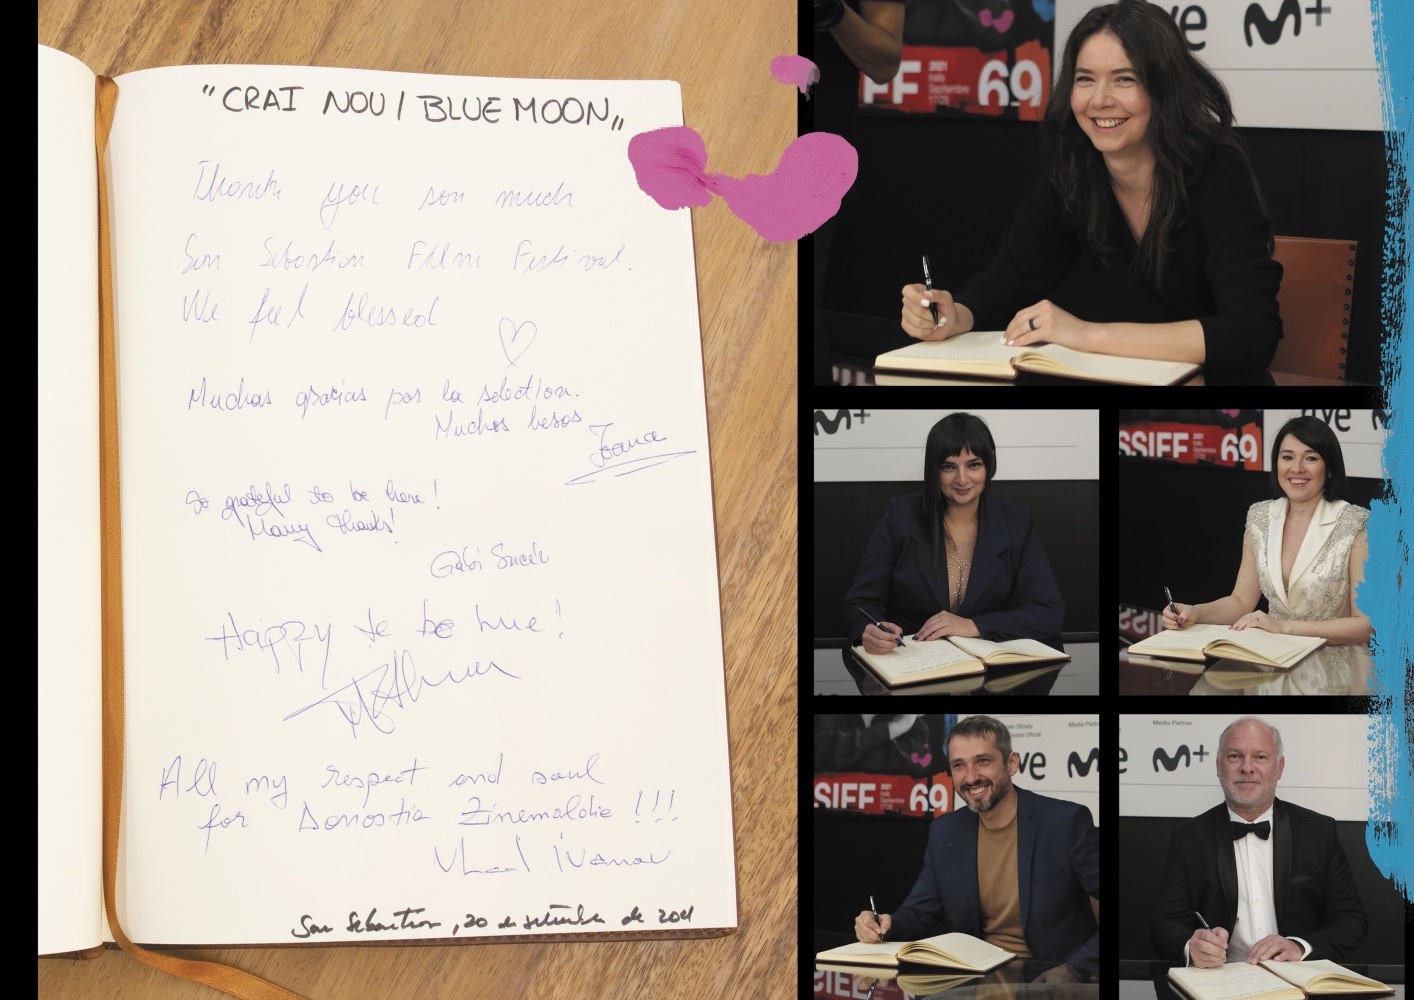 "CRAI NOU / BLUE MOON"
Thank you son much
San Sebastian FIlm Festival.
We feel blessed
Muchas gracias por la selection.
Muchos besos
Ioana
So grateful to be here!
Many thanks!
Gabi
Happy to be here!
All my respect and soul
for Donostia Zinemaldia !!!
Vlad Ivanov
San Sebastian, 20 de setiembre de 2021
FF
2021
Irails
Septiembre
17/25
69
ve
M+
M+
SSIFF
69
ve
Media Partner
SIFF
2021
Irails
Septiembre
17/25
69
ve
Media Partner
M+